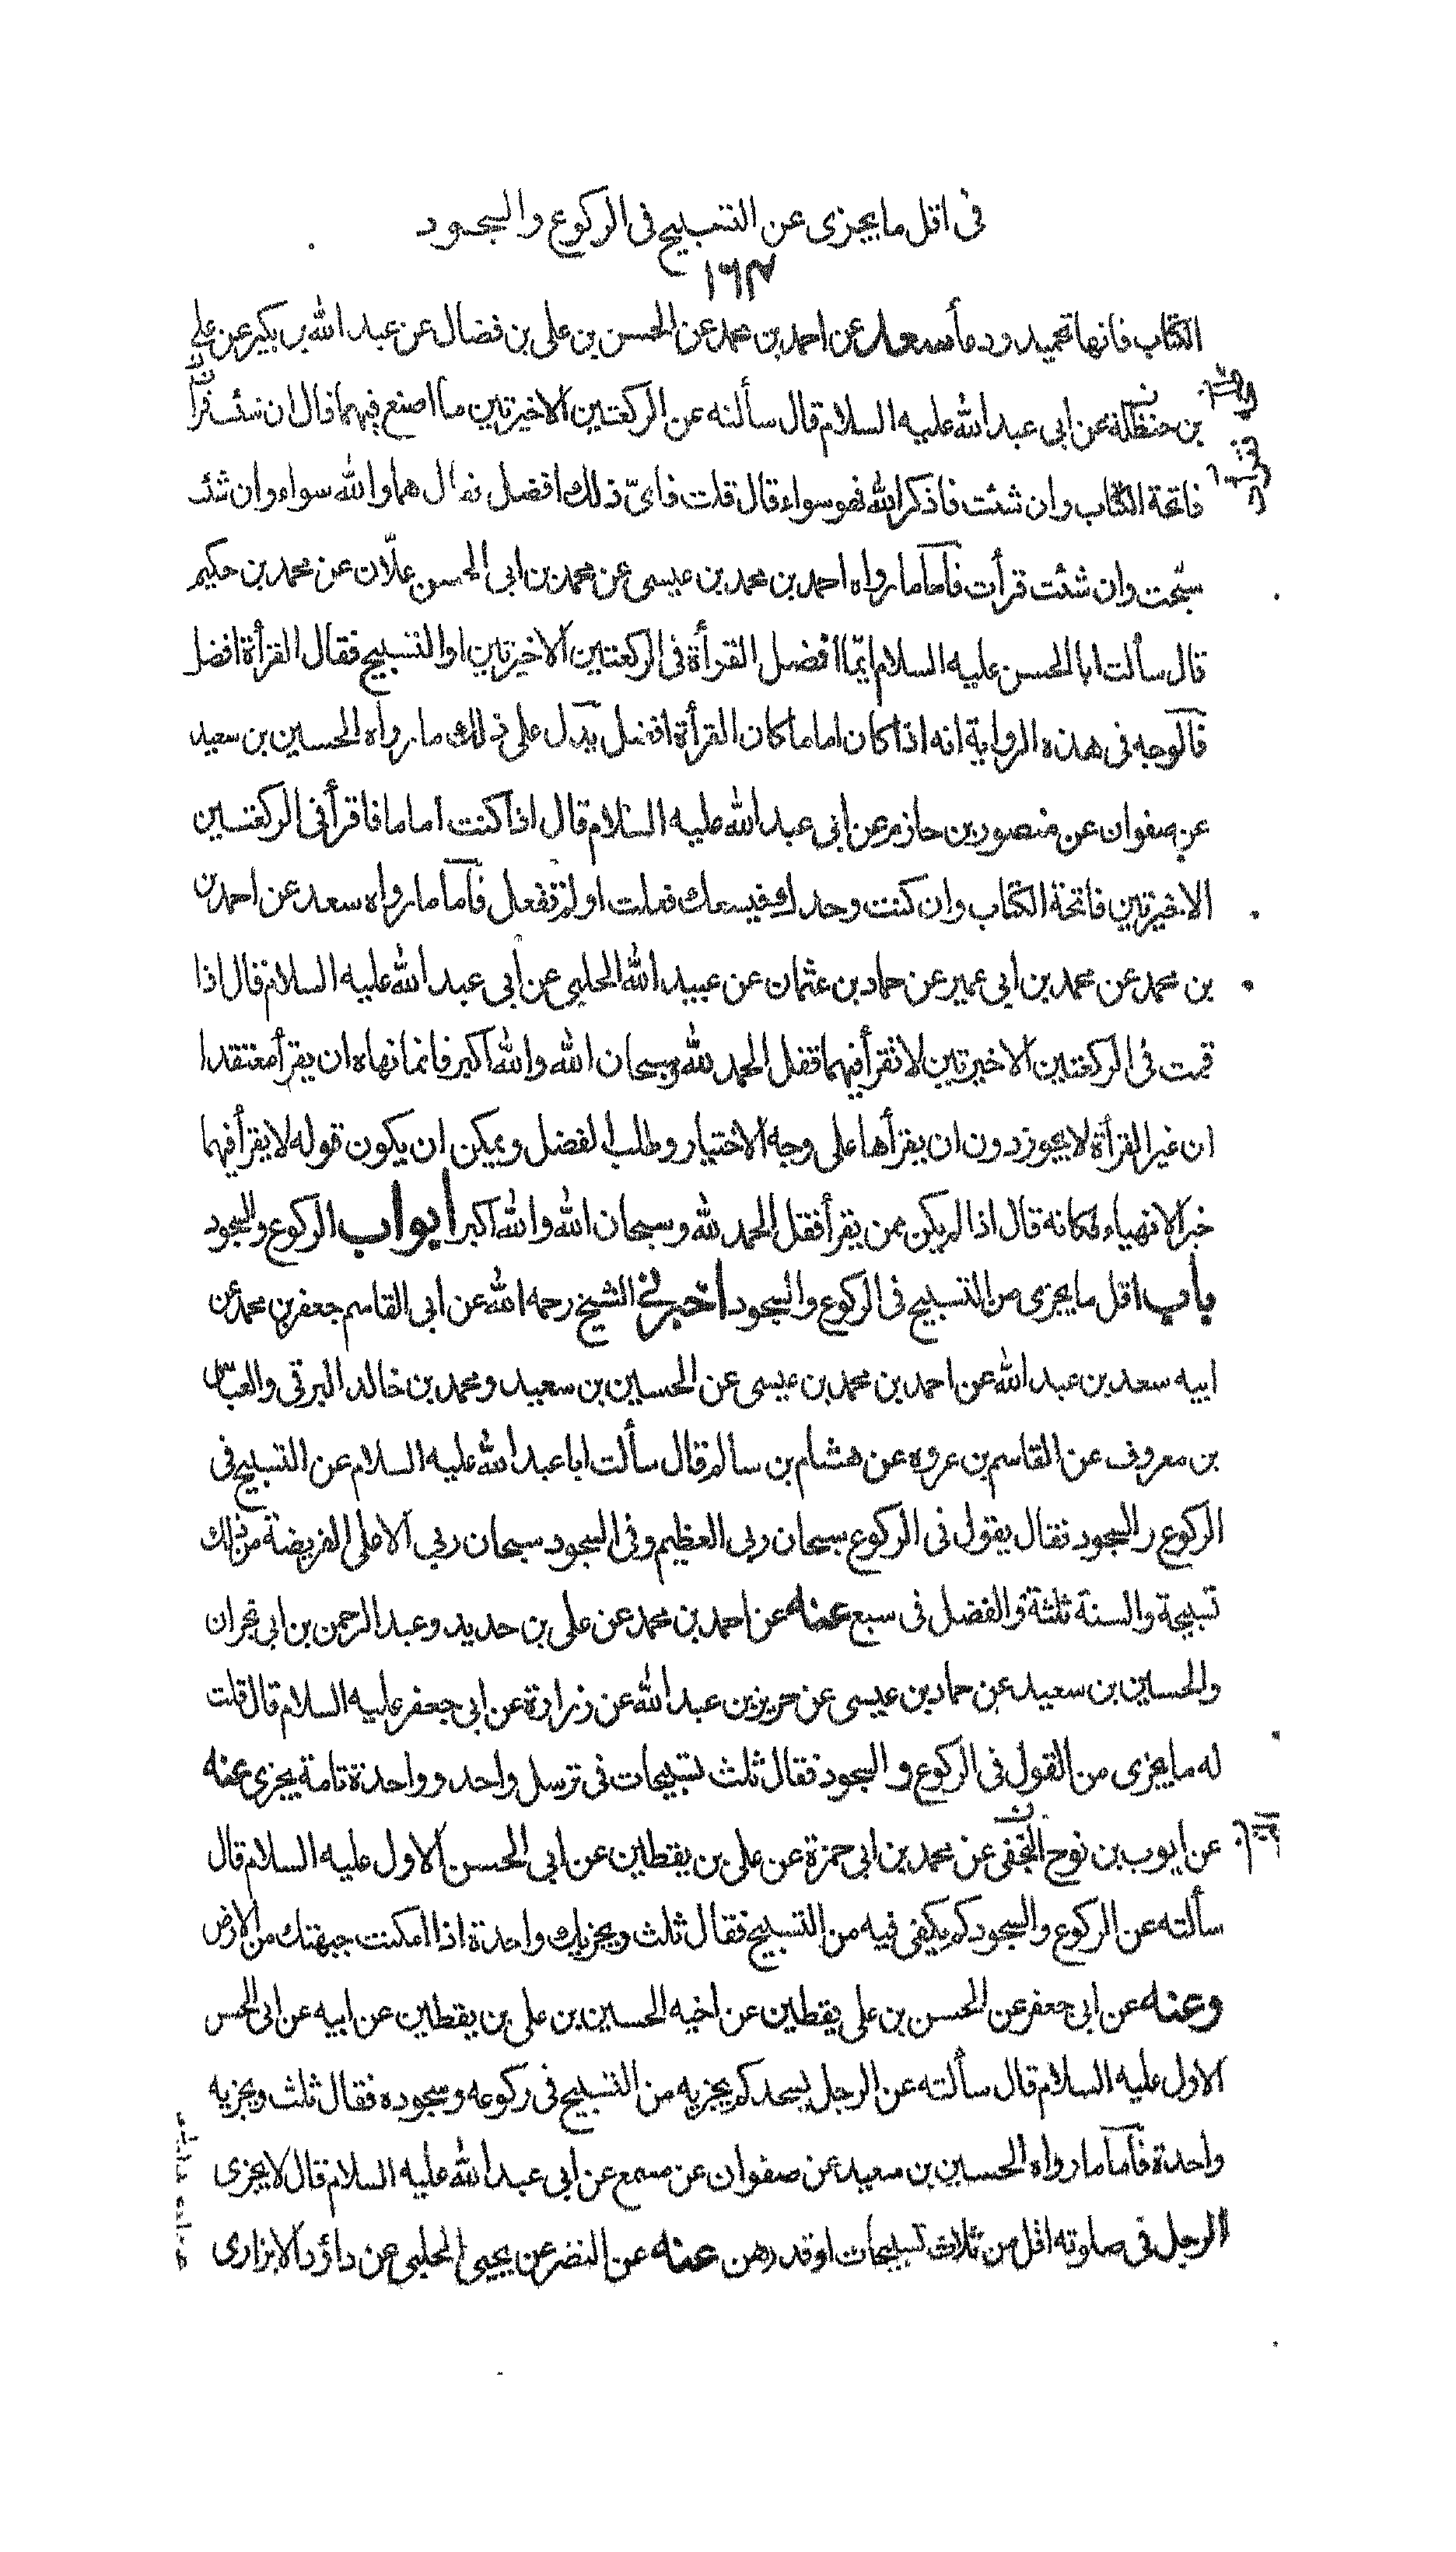 فى اقل ما يجزى عن التسبيح فى الركوع والسجود
١٦٣
الكتاب فانها تحميد ودعأ سعد عن احمد بن محمد عن الحسن بن على بن فضال عن عبد الله بن بكير عن على
بن حنظلة عن ابى عبد الله عليه السلام قال سألته عن الركعتين الاخيرتين ما اصنع فيهما قال ان شئت فاقرأ
فاتحة الكتاب وان شئت فاذكر الله فهو سواء قال قلت فاىّ ذلك افضل فقال هما والله سواء وان شئت
سبّحت وان شئت قرأت فأما ما رواه احمد بن محمد بن عيسى عن محمد بن ابى الحسن علّان عن محمد بن حكيم
قال سألت ابا الحسن عليه السلام ايّما افضل القرأة فى الركعتين الاخيرتين او التسبيح فقال القرأة افضل
فالوجه فى هذه الرواية انه اذا كان اماما كان القرأة افضل يدل على ذلك ما رواه الحسين بن سعيد
عن صفوان عن منصور بن حازم عن ابى عبد الله عليه السلام قال اذا كنت اماما فاقرأ فى الركعتين
الاخيرتين فاتحة الكتاب وان كنت وحدك فيسعك فعلت او لم تفعل فأما ما رواه سعد عن احمد بن
بن محمد عن محمد بن ابى عمير عن حماد بن عثمان عن عبيد الله الحلبى عن أبى عبد الله عليه السلام قال اذا
قمت فى الركعتين الاخيرتين لا تقرأ فيهما فقل الحمد لله وسبحان الله والله اكبر فانما نهاه ان يقرأ معتقدا
ان غير القرأة لا يجوز دون ان يقرأها على وجه الاختيار وطلب الفضل ويمكن ان يكون قوله لا يقرأ فيهما
خبر الا نهياء فكانه قال اذا لم يكن ممن يقرأ فقل الحمد لله وسبحان الله والله اكبر ابواب الركوع والسجود
باب اقل ما يجزى من التسبيح فى الركوع والسجود اخبرنى الشيخ رحمه الله عن ابى القاسم جعفر بن محمد عن
ابيه سعد بن عبد الله عن احمد بن محمد بن عيسى عن الحسين بن سعيد ومحمد بن خالد البرقى والعباس
بن معروف عن القاسم بن عروه عن هشام بن سالم قال سألت ابا عبد الله عليه السلام عن التسبيح فى
الركوع والسجود فقال يقول فى الركوع سبحان ربى العظيم وفى السجود سبحان ربى الاعلى الفريضة من ذلك
تسبيحة والسنة ثلثة والفضل فى سبع عنه عن احمد بن محمد عن على بن حديد وعبد الرحمن بن ابى نجران
والحسين بن سعيد عن حماد بن عيسى عن حريز بن عبد الله عن زرارة عن ابى جعفر عليه السلام قال قلت
له ما يجزى من القول فى الركوع و السجود فقال ثلث تسبيحات فى ترسل واحد وواحدة تامة يجزى عنه
عن ايوب بن نوح النخعى عن محمد بن ابى حمزة عن على بن يقطين عن ابى الحسن الاول عليه السلام قال
سألته عن الركوع والسجود كم يكفى فيه من التسبيح فقال ثلث ويجزيك واحدة اذا امكنت جبهتك من الارض
وعنه عن ابى جعفر عن الحسن بن على يقطين عن اخيه الحسين بن على بن يقطين عن ابيه عن ابى الحسن
الاول عليه السلام قال سألته عن الرجل يسجد كم يجزيه من التسبيح فى ركوعه وسجوده فقال ثلث ويجزيه
واحدة فأما ما رواه الحسين بن سعيد عن صفوان عن مسمع عن ابى عبد الله عليه السلام قال لا يجزى
الرجل فى صلوته اقل من ثلاث تسبيحات او قدرهن عنه عن النضر عن يحيى الحلبى عن داؤد الابزارى